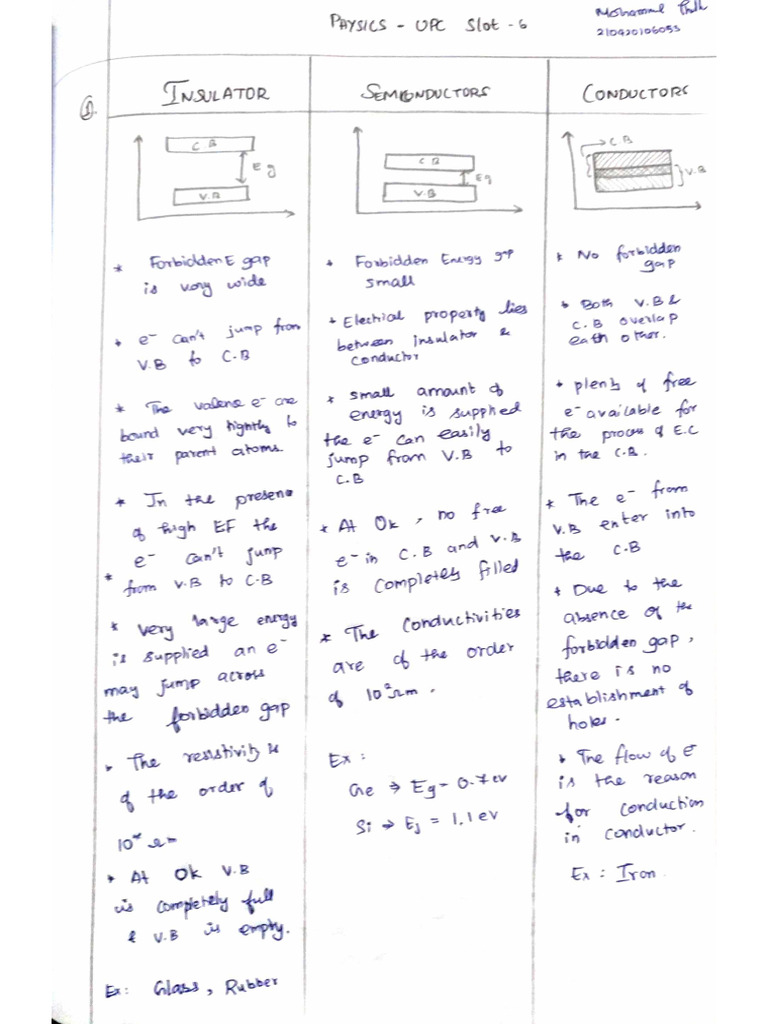 PHYSICS - UPC Slot - 6
Mohammed
210420106055
1.
INSULATOR
C.B
Eg
V.B
* Forbidden E gap
is very wide
* e- can't jump from
V.B to C.B
* The valense e- are
bound very tightly to
their parent atoms.
* In the presence
of high EF the
e- can't jump
* from V.B to C.B
* Very large energy
is supplied an e-
may jump across
the forbidden gap
* The resistivity is
of the order of
Ωm
* At 0k V.B
is completely full
& V.B is empty.
Ex: Glass, Rubber
SEMICONDUCTORS
C.B
Eg
V.B
* Forbidden Energy gap
small
* Electrial property lies
between insulator &
conductor
* small amount of
energy is supplied
the e- can easily
jump from V.B to
C.B
* At 0k, no free
e- in C.B and V.B
is completely filled
* The conductivities
are of the order
of 10² Ωm.
Ex:
Ge → Eg - 0.7 ev
Si → Eg = 1.1 ev
CONDUCTORS
C.B
V.B
* No forbidden
gap
* Both V.B &
C.B overlap
eath other.
* plenty of free
e- available for
the process of E.C
in the C.B.
* The e- from
V.B enter into
the C.B
* Due to the
absence of the
forbidden gap,
there is no
establishment of
holes.
* The flow of e-
is the reason
for conduction
in conductor.
Ex: Iron